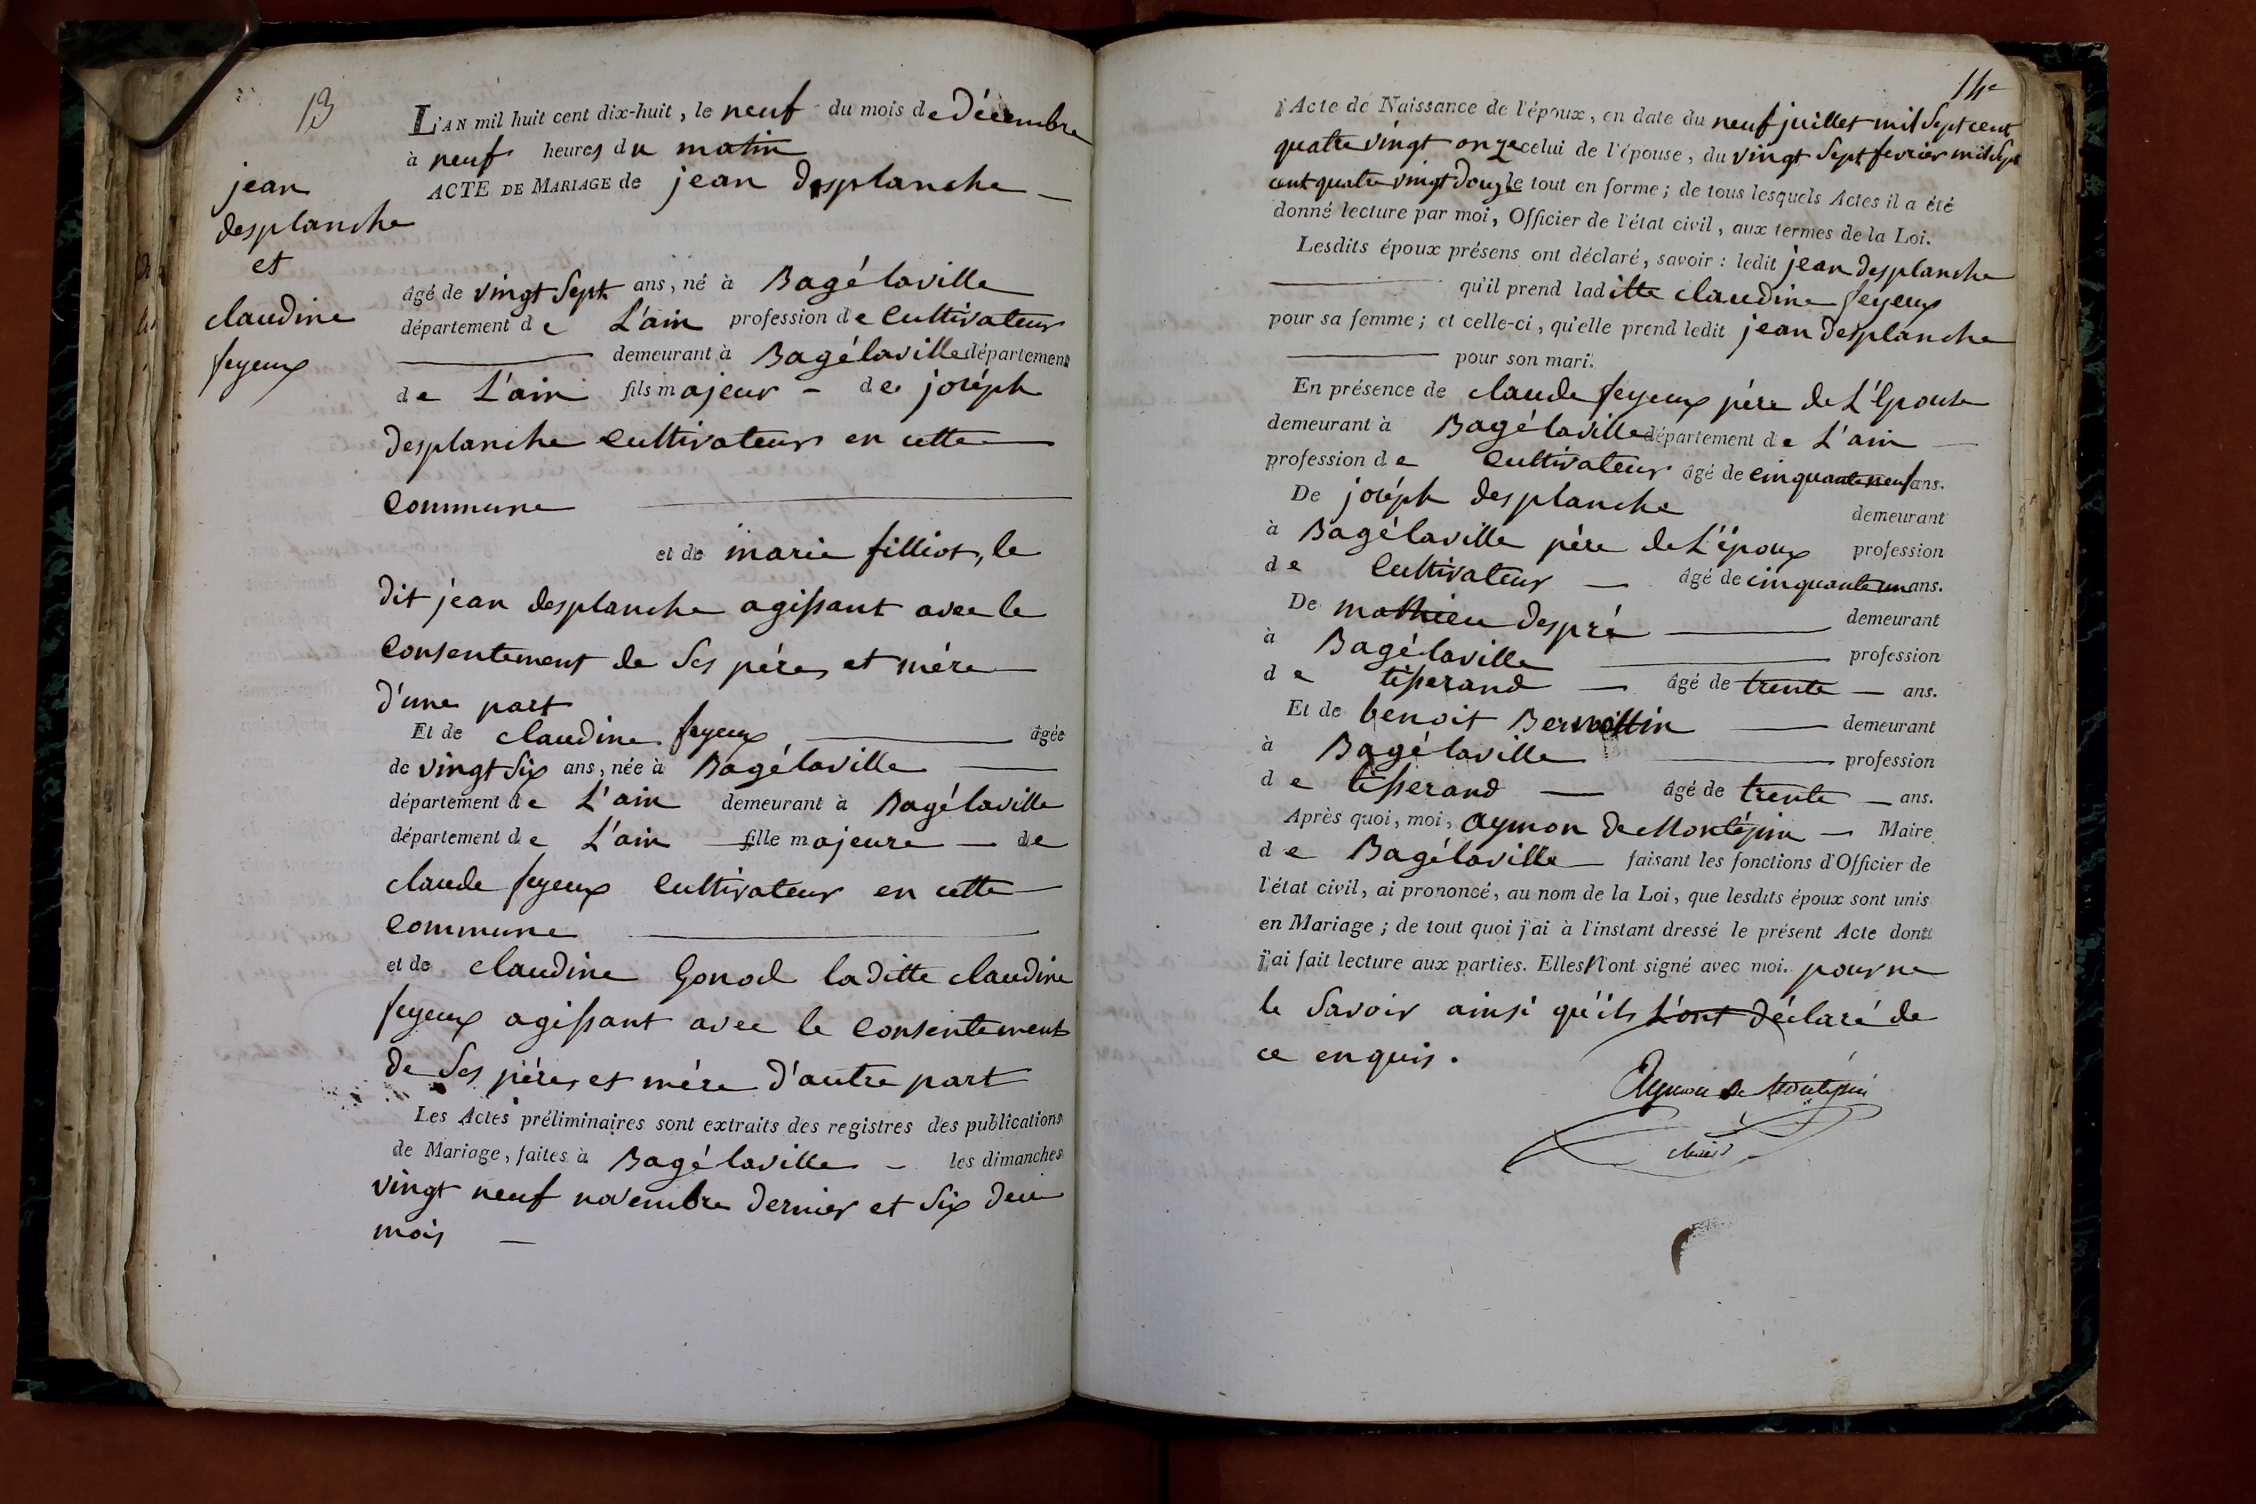 13
jean
desplanche
et
claudine
feyeux
L'AN mil huit cent dix-huit, le neuf du mois de Décembre
à neuf heures du matin
ACTE DE MARIAGE de jean desplanche
âgé de vingt Sept ans, né à Bagélaville
département de L'ain profession de Cultivateur
demeurant à Bagélaville département
de L'ain fils majeur de joséph
desplanche Cultivateur en cette
Commune
et de marie filliot, le
dit jean desplanche agissant avec le
Consentement de Ses pére et mére
d'une part
Et de claudine feyeux âgée
de vingt Six ans, née à Bagélaville
département de L'ain demeurant à Bagélaville
département de L'ain fille majeure de
claude feyeux Cultivateur en cette
Commune
et de claudine Gonod laditte claudine
feyeux agissant avec le Consentement
de Ses pére et mére d'autre part
Les Actes préliminaires sont extraits des registres des publications
de Mariage, faites à Bagélaville les dimanches
vingt neuf novembre dernier et Six du
mois
14
l'Acte de Naissance de l'époux, en date du neuf juillet mil Sept cent
quatre vingt onze celui de l'épouse, du vingt Sept fevrier mil Sept
cent quatre vingt douze le tout en forme; de tous lesquels Actes il a été
donné lecture par moi, Officier de l'état civil, aux termes de la Loi.
Lesdits époux présens ont déclaré, savoir : ledit jean desplanche
qu'il prend laditte claudine feyeux
pour sa femme; et celle-ci, qu'elle prend ledit jean desplanche
pour son mari.
En présence de claude feyeux pére de L'Epouse
demeurant à Bagélaville département de L'ain
profession de Cultivateur âgé de cinquante neuf ans.
De joséph desplanche demeurant
à Bagélaville pére de L'époux profession
de Cultivateur âgé de cinquante un ans.
De mathieu despré demeurant
à Bagélaville profession
de tisserand âgé de trente ans.
Et de benoit demeurant
à Bagélaville profession
de tisserand âgé de trente ans.
Après quoi, moi, aymon de Montépin Maire
de Bagélaville faisant les fonctions d'Officier de
l'état civil, ai prononcé, au nom de la Loi, que lesdits époux sont unis
en Mariage; de tout quoi j'ai à l'instant dressé le présent Acte dont
j'ai fait lecture aux parties. Elles N'ont signé avec moi. pour ne
le Savoir ainsi qu'ils L'ont déclaré de
ce enquis.
Aymon de Montépin